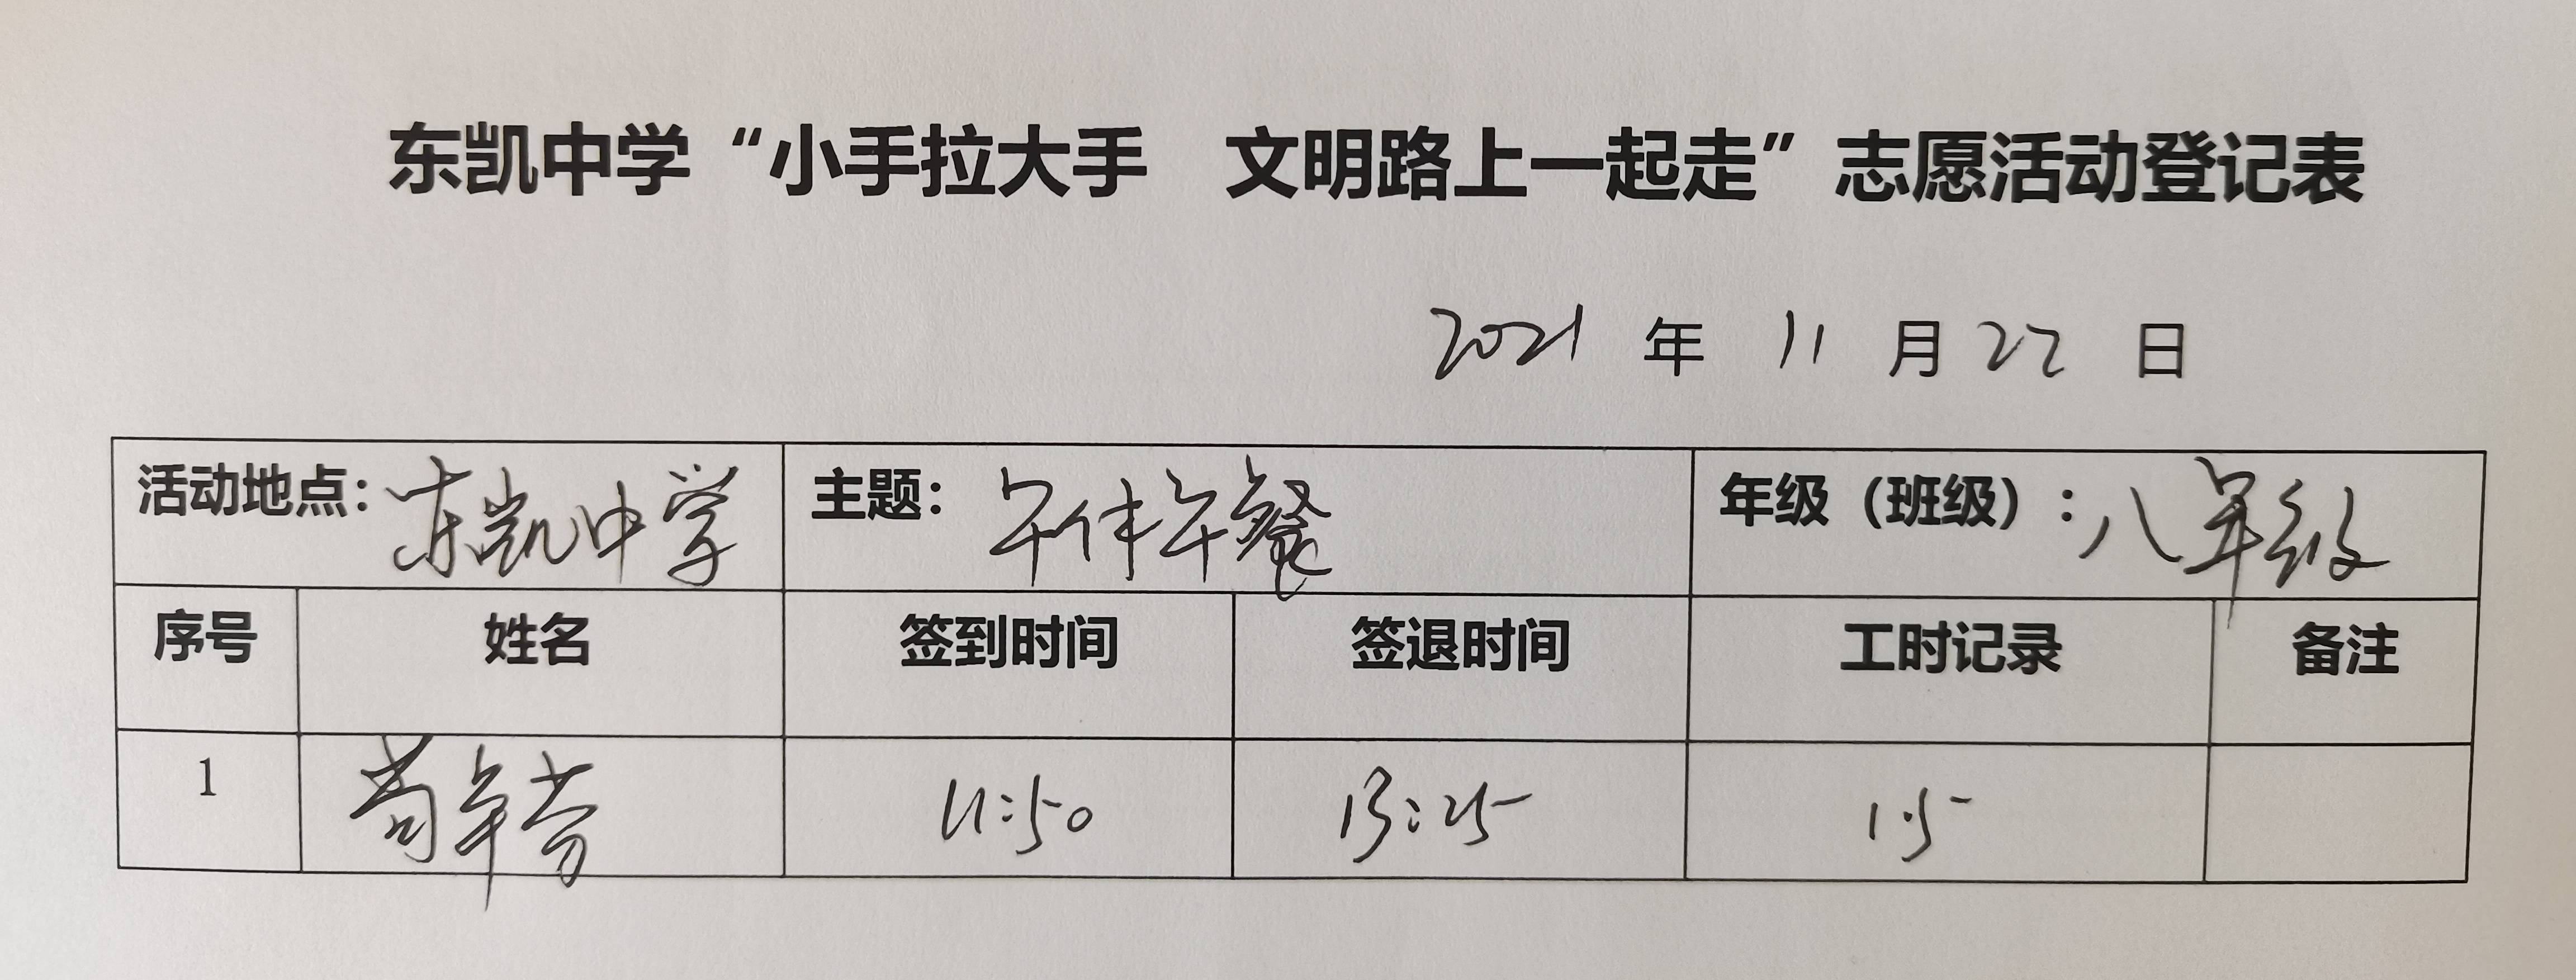 东凯中学“小手拉大手 文明路上一起走”志愿活动登记表
2021 年 11 月 22 日
活动地点：东凯中学 主题：午休午餐 年级（班级）：八年级
序号 姓名 签到时间 签退时间 工时记录 备注
1 苟年芳 11:50 13:25 1.5